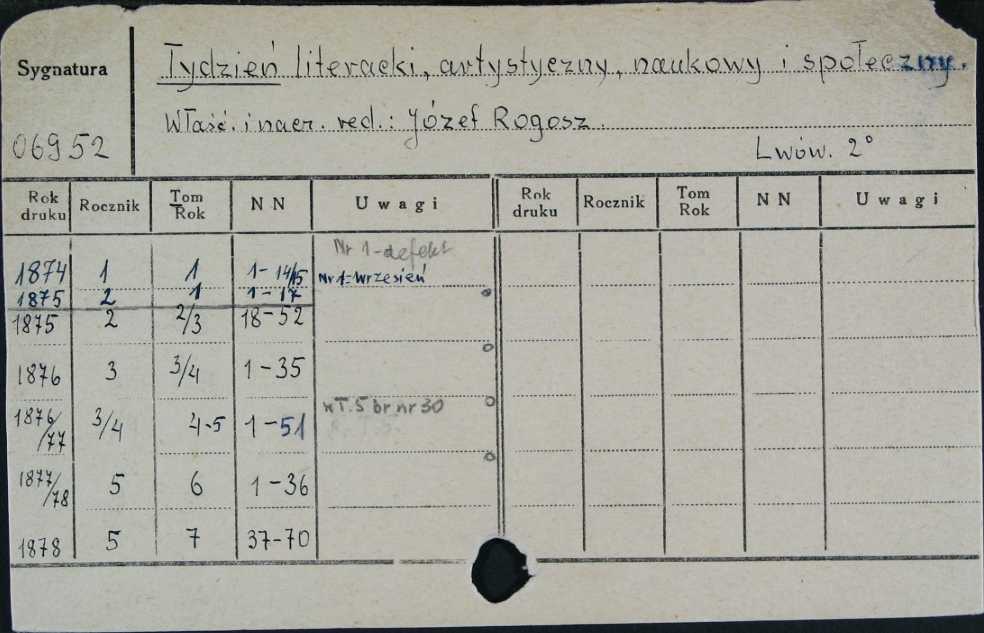 Sygnatura
06952
Tydzień literacki, artystyczny, naukowy i społeczny.
Właść. i nacz. red.: Józef Rogosz.
Lwów. 2°
Rok druku Rocznik Tom Rok NN Uwagi Rok druku Rocznik Tom Rok NN Uwagi
Nr 1 - defekt
1874 1 1 1-14/15 Nr 1 = wrzesień
1875 2 1 1-17
1875 2 2/3 18-52
1876 3 3/4 1-35
w T. 5 br nr 30
1876/77 3/4 4-5 1-51
1877/78 5 6 1-36
1878 5 7 37-70